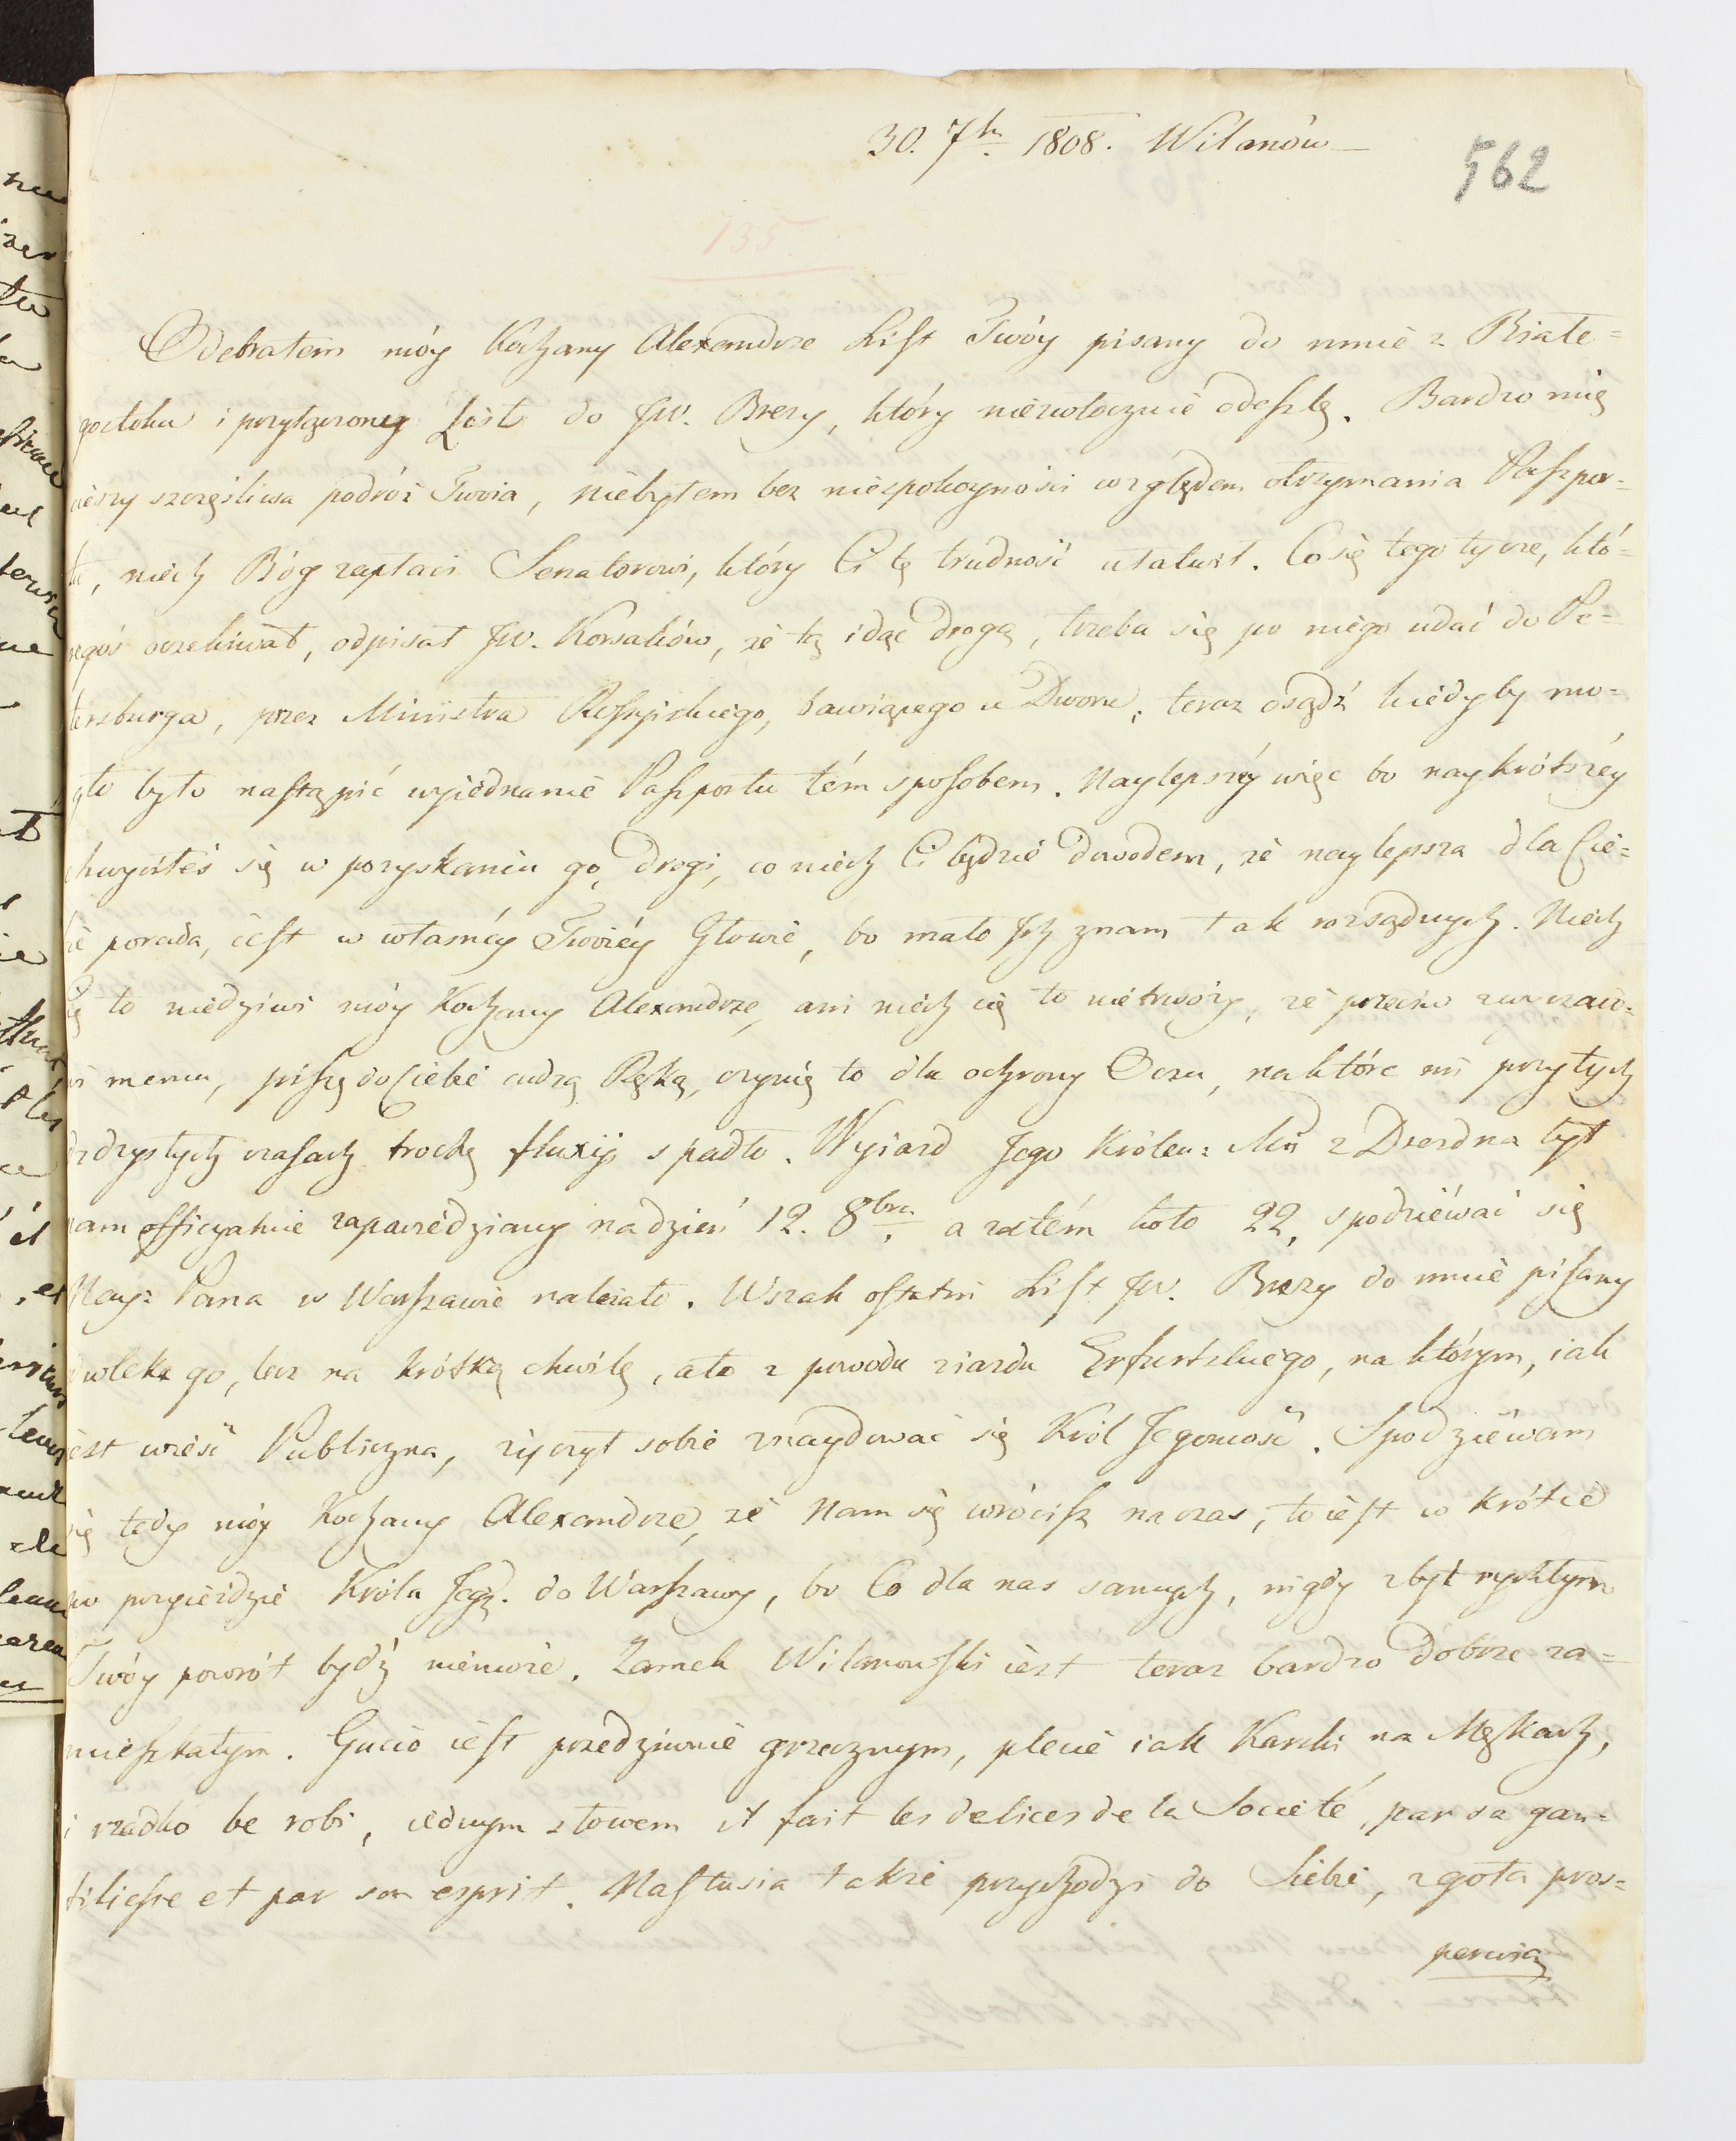 30. 7br. 1808. Wilanów
562
135
Odebrałem móy Kochany Alexandrze List Twóy pisany do mnie z Białe=
gostoku i przyłączony List do JW. Brezy, który niezwłocznie odeszlę. Bardzo mię
cieszy szczęśliwa podróż Twoia, niebyłem bez niespokoyności względem otrzymania Paszpor=
tu, niech Bóg zapłaci Senatorowi, który Ci tę trudność ułatwił. Co się tego tycze, któ=
regoś oczekiwał, odpisał JW. Korsaków, że tą idąc drogą, trzeba się po niego udać do Pe=
tersburga, przez Ministra Rossyiskiego, bawiącego u Dworu, teraz osądź kiedyby mo=
gło było nastąpić wyiednanie Paszportu tém sposobem. Naylepszéy więc bo naykrótszéy
chwyciłeś się w pozyskaniu go, drogi, co niech Ci będzie dowodem, że naylepsza dla Cie=
bie porada, iest w własnéy Twoiéy Głowie, bo mało Jch znam tak rozsądnych. Niech
Cię to niedziwi móy Kochany Alexandrze, ani niech cię to nietrwoży, że przeciw zwyczaio=
wi memu, piszę do Ciebie cudzą Ręką, czynię to dla ochrony Oczu, na które mi przy tych
dżdżystych czasach trochę fluxyi spadło. Wyiazd Jego Królew: Mći z Drezdna był
nam officyalnie zapowiedziany na dzień 12. 8bra. a zatém koło 22, spodziéwać się
Nay: Pana w Warszawie należało. Wszak ostatni List JW. Brezy do mnie pisany
zwleka go, lecz na krótką chwilę, a to z powodu ziazdu Erfurtskiego, na którym, iak
iest wieść Publiczna, życzył sobie znaydować się Król Jegomość. Spodziéwam
się tedy móy Kochany Alexandrze, że Nam się wrócisz na czas, to iest w krótce
po przyieździe Króla Jegź. do Warszawy, bo Co dla nas samych, nigdy zbyt rychłym
Twóy powrót bydź niemoże. Zamek Wilanowski iest teraz bardzo dobrze za=
mieszkałym. Gucio iest przedziwnie grzecznym, plecie iak Karski na Mękach,
i rzadko be robi, iednym słowem il fait les delices de la Societé, par sa gan=
tiliesse et par son esprit. Nastusia także przychodzi do Siebie, zgoła pros=
perwią